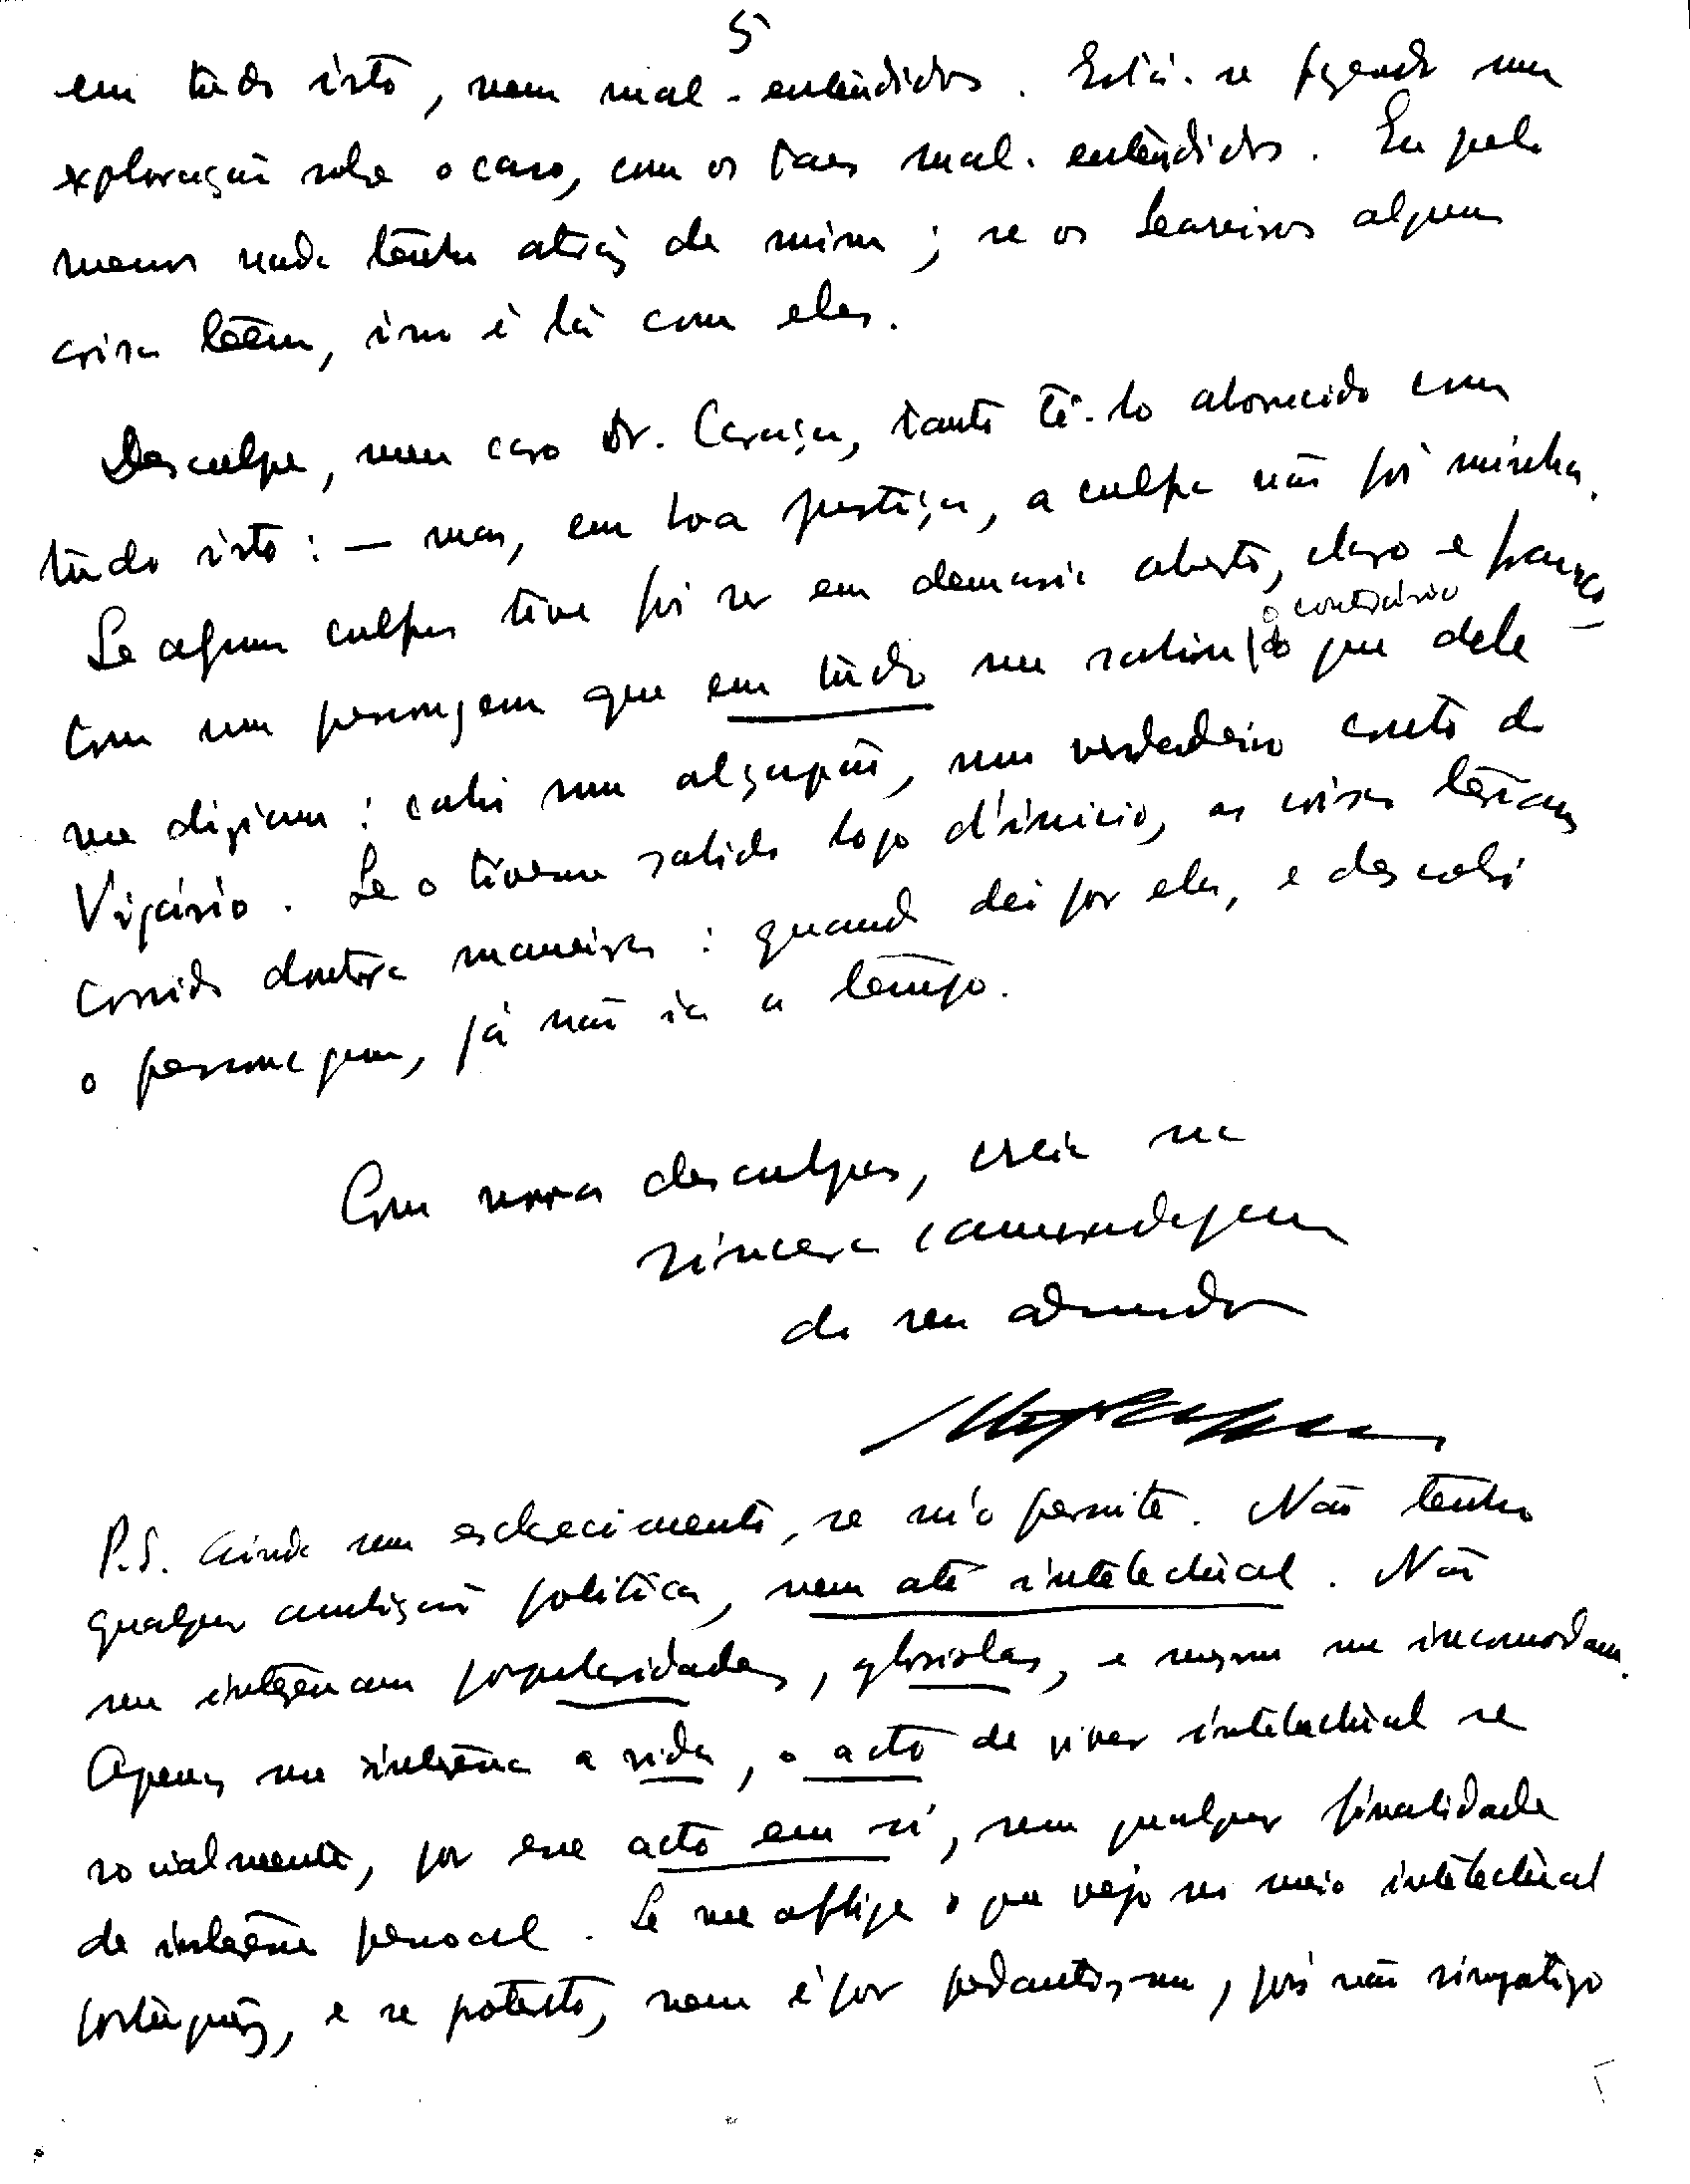 5
em tudo isto, nem mal-entendidos. Está-se fazendo uma
exploração sobre o caso, com os taes mal-entendidos. Eu pelo
menos nada tenho atráz de mim; se os Seareiros alguma
coisa teem, isso é lá com eles.
Desculpe, meu caro Dr. Caraça, tanto tê-lo aborrecido com
tudo isto: — mas, em boa justiça, a culpa não foi minha.
Se alguma culpa tive foi ser em demasia aberto, claro e franco
o contrário
com um personagem que em tudo me saiu que dele
me diziam: cahi num alçapão, num verdadeiro conto do
Vigário. Se o tivesse sabido logo d'inicio, as coisas teriam
corrido doutra maneira: quando dei por ela, e descobri
o personagem, já não ia a tempo.
Com novas desculpas, creia na
sincera camaradagem
do seu admirador
P.S. Ainda um esclarecimento, se m'o permite. Não tenho
qualquer ambição politica, nem até intelectual. Não
me interessam popularidades, gloriolas, e mesmo me incomodam.
Apenas me interessa a vida, o acto de viver intelectual e
socialmente, por esse acto em si, sem qualquer finalidade
de interesse pessoal. Se me aflige o que vejo no meio intelectual
português, e se protesto, nem é por pedantismo, pois não simpatizo